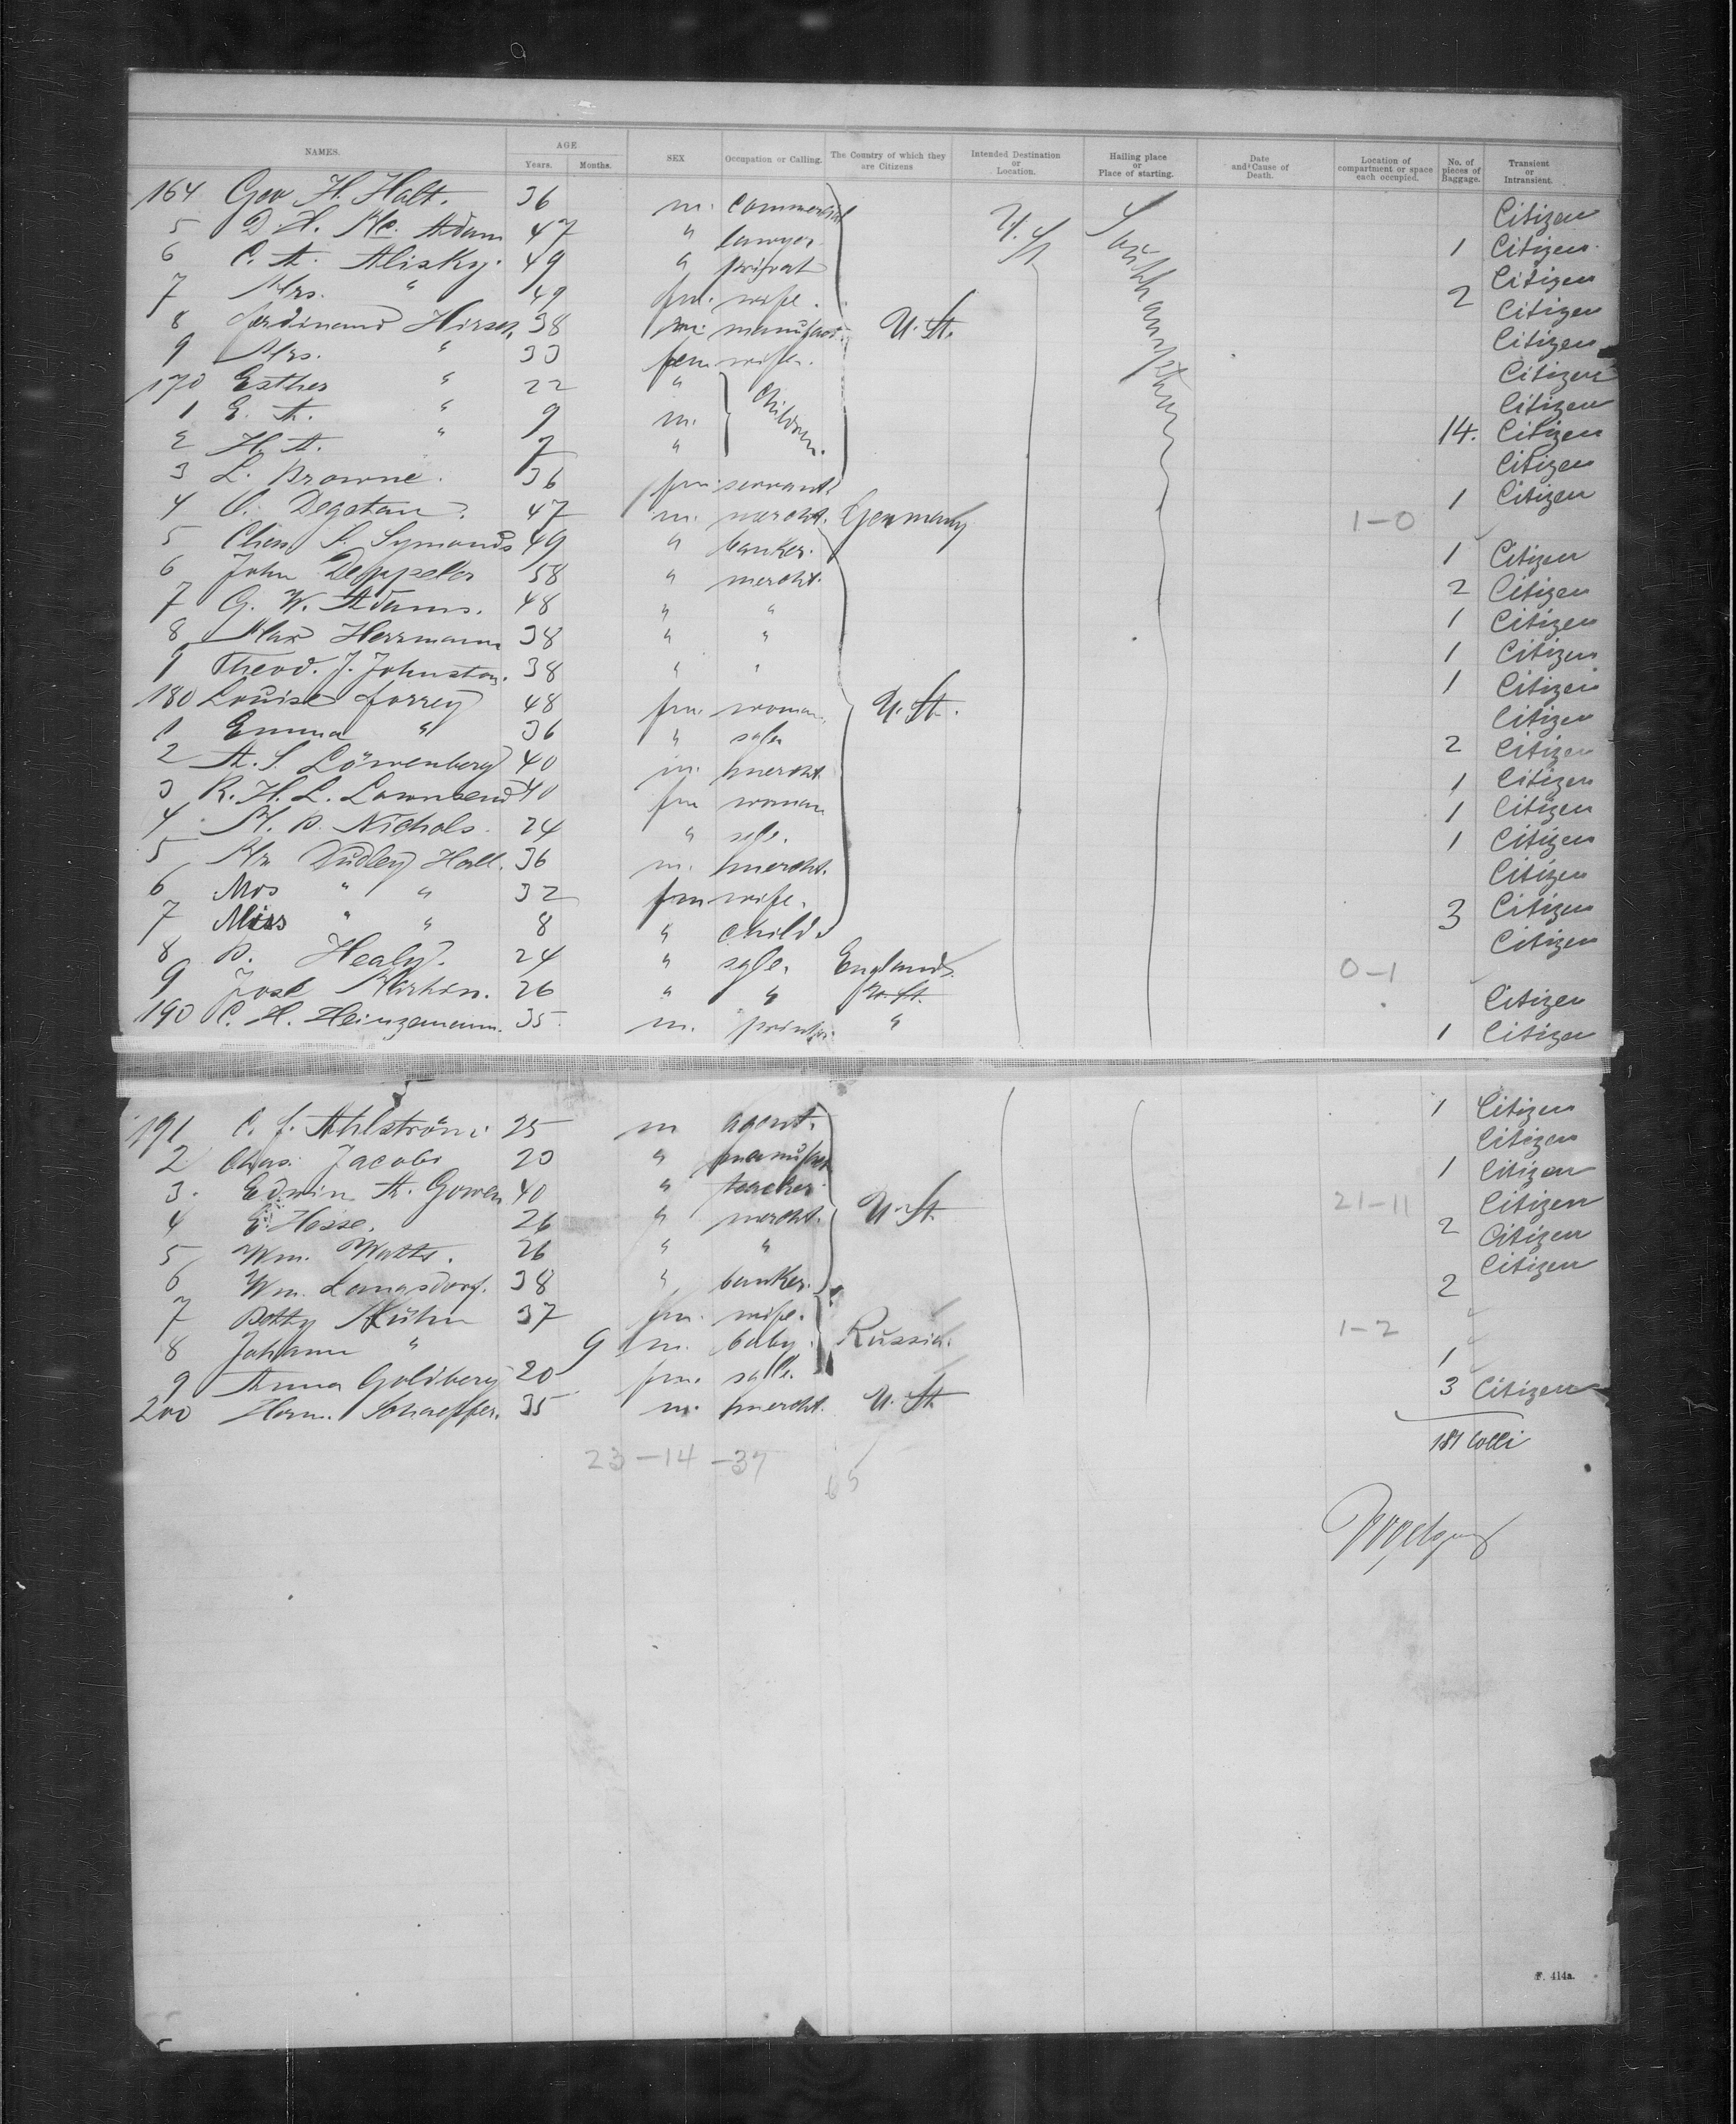 NAMES. AGE Years. Months. SEX Occupation or Calling. The Country of which they are Citizens Intended Destination or Location. Hailing place or Place of starting. Date and Cause of Death. Location of compartment or space each occupied. No. of pieces of Baggage. Transient or Intransient.
164 Geo H. Halt. 36 m. commercial U. St. Southampton Citizen
5 D. H. Mc. Adam 47 " lawyer 1 Citizen
6 C. A. Alisky. 49 " privat Citizen
7 Mrs. " 49 fm. wife. 2 Citizen
8 Ferdinand Hirsch 38 m. manufact. U. St. Citizen
9 Mrs. " 33 fem wife. Citizen
170 Esther " 22 " Children. Citizen
1 E. A. " 9 m. 14. Citizen
2 H. A. " 7 " Citizen
3 L. Browne. 36 fm. servant. 1 Citizen
4 O. Degetau. 47 m. mercht. Germany 1-0
5 Chas. S. Symonds 49 " banker. 1 Citizen
6 John Deppeler 58 " mercht. 2 Citizen
7 G. W. Adams. 48 " " 1 Citizen
8 Max Herrmann 38 " " 1 Citizen
9 Theod. J. Johnston. 38 " " 1 Citizen
180 Louise Torrey 48 fm. woman. U. St. Citizen
1 Emma " 36 " sgle 2 Citizen
2 A. S. Löwenberg 40 m. mercht. 1 Citizen
3 R. H. L. Townsend 40 fm woman 1 Citizen
4 M. B. Nichols. 24 " sgle. 1 Citizen
5 Mr Dudley Hall. 36 m. mercht. Citizen
6 Mrs " " 32 fm wife. 3 Citizen
7 Miss " " 8 " child. Citizen
8 B. Healy. 24 " sgle. England. 0-1
9 José 26 " " U. St. Citizen
190 C. H. Heinzemann. 35 m. printer. " 1 Citizen
191 C. J. Ahlström. 25 m agent. 1 Citizen
2 Chas. Jacobi 20 " manufact Citizen
3. Edwin A. Gowen 40 " teacher 1 Citizen
4 E. Hesse. 26 " mercht. U. St. 21-11 Citizen
5 Wm. Watts. 26 " " 2 Citizen
6 Wm. Langsdorf. 38 " banker. 2 Citizen
7 Betty Kühn 37 fm. wife.
8 Johann " 9 m. baby. Russia. 1-2
9 Anna Goldberg 20 fm. sgle. 1
200 Herm. Schaeffer. 35 m. mercht. U. St. 3 Citizen
181 Colli
23-14-37
65
F. 414a.